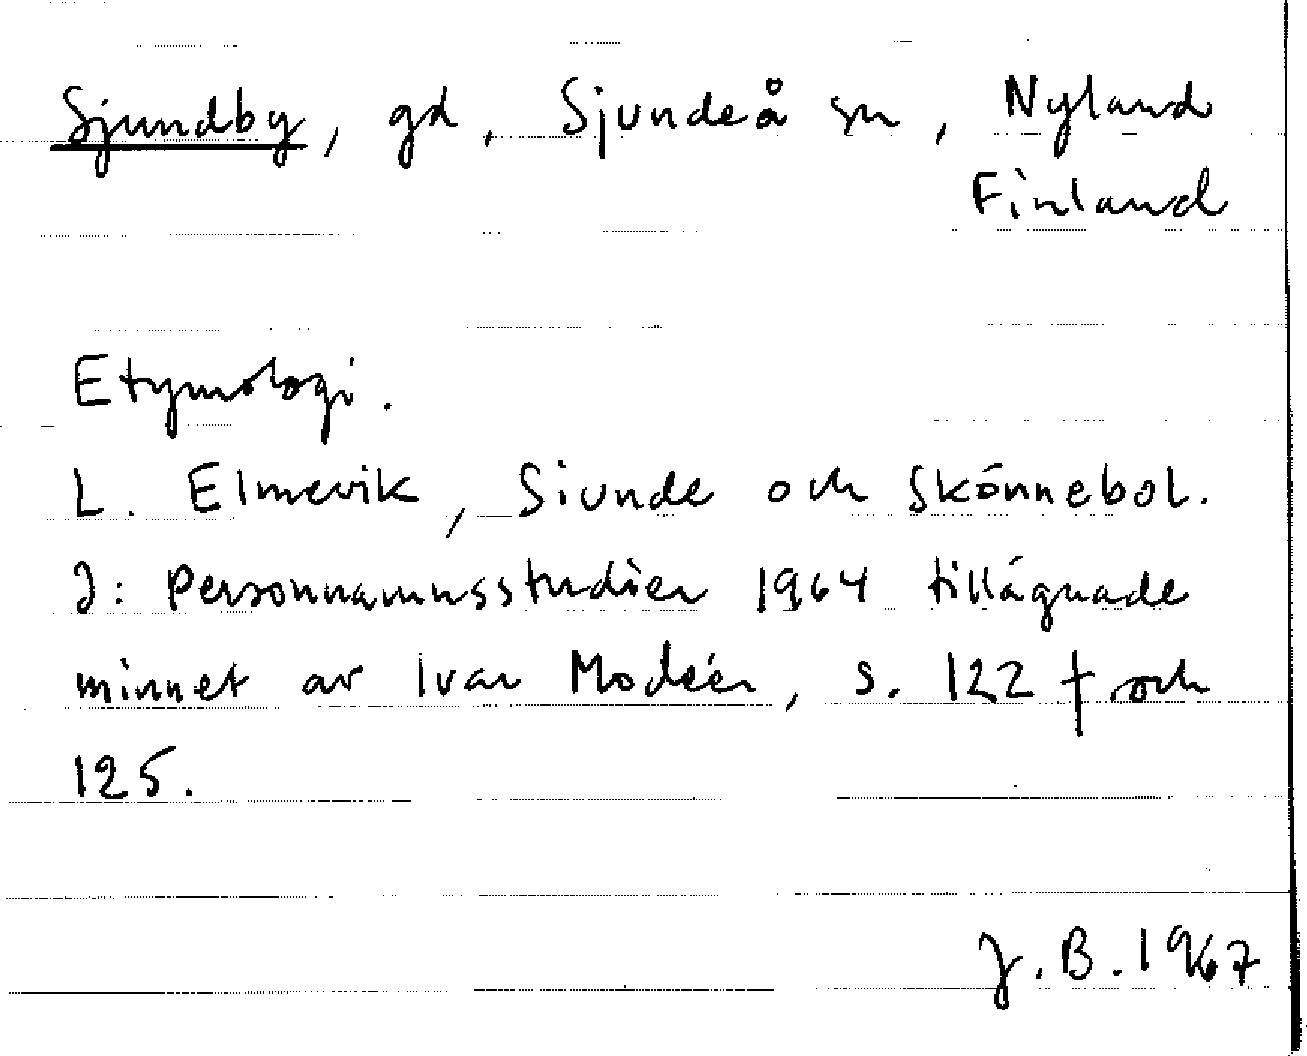 Sjundby, gd, Sjundeå sn, Nyland
Finland
Etymologi.
L. Elmevik, Siunde och Skönnebol.
I: Personnamnsstudier 1964 tillägnade
minnet av Ivar Modéer, s. 122 f och
125.
J.B. 1967